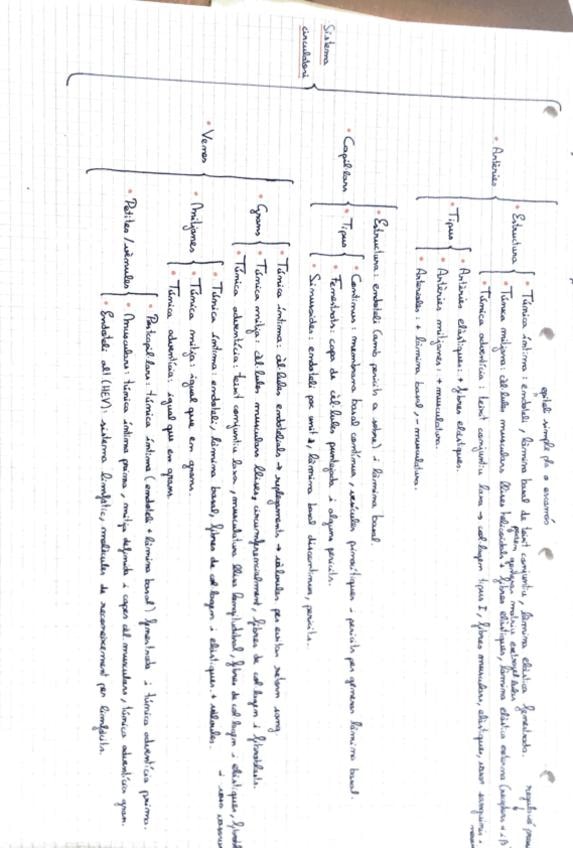 Sistema
circulatori
• Artèries
epiteli simple pla o escamós
• Estructura
• Túnica íntima: endoteli, làmina basal de teixit conjuntiu, làmina elàstica fenestrada.
poden generar matriu extracel·lular
• Túnica mitjana: cèl·lules musculars llises helicoidals + fibres elàstiques, làmina elàstica externa
• Túnica adventícia: teixit conjuntiu laxe → col·lagen tipus I, fibres musculars, elàstiques, vasos sanguinis i
• Tipus
• Artèries elàstiques: + fibres elàstiques.
• Artèries mitjanes: + musculatura.
• Arterioles: + làmina basal, - musculatura.
• Capil·lars
• Estructura: endoteli (amb pericits a sobre) i làmina basal.
• Tipus
• Continus: membrana basal contínua, vesícules pinocítiques i pericits per generar làmina basal.
• Fenestrats: capa de cèl·lules puntejada i alguns pericits.
• Sinusoides: endoteli poc unit, làmina basal discontínua, pericits.
• Venes
• Grans
• Túnica íntima: cèl·lules endotelials → replegaments → vàlvules per evitar retorn sang
• Túnica mitja: cèl·lules musculars llises, circumferencialment, fibres de col·lagen i fibroblasts.
• Túnica adventícia: teixit conjuntiu laxe, musculatura llisa longitudinal, fibres de col·lagen i elàstiques,
• Mitjanes
• Túnica íntima: endoteli, làmina basal, fibres de col·lagen i elàstiques + vàlvules.
• Túnica mitja: igual que en grans.
• Túnica adventícia: igual que en grans.
• Petites / vènules
• Postcapil·lars: túnica íntima (endoteli + làmina basal) fenestrada i túnica adventícia prima.
• Musculars: túnica íntima prima, mitja definida i capes cèl musculars, túnica adventícia gran.
• Endoteli alt (HEV): sistema limfàtic, molècules de reconeixement per limfòcits.